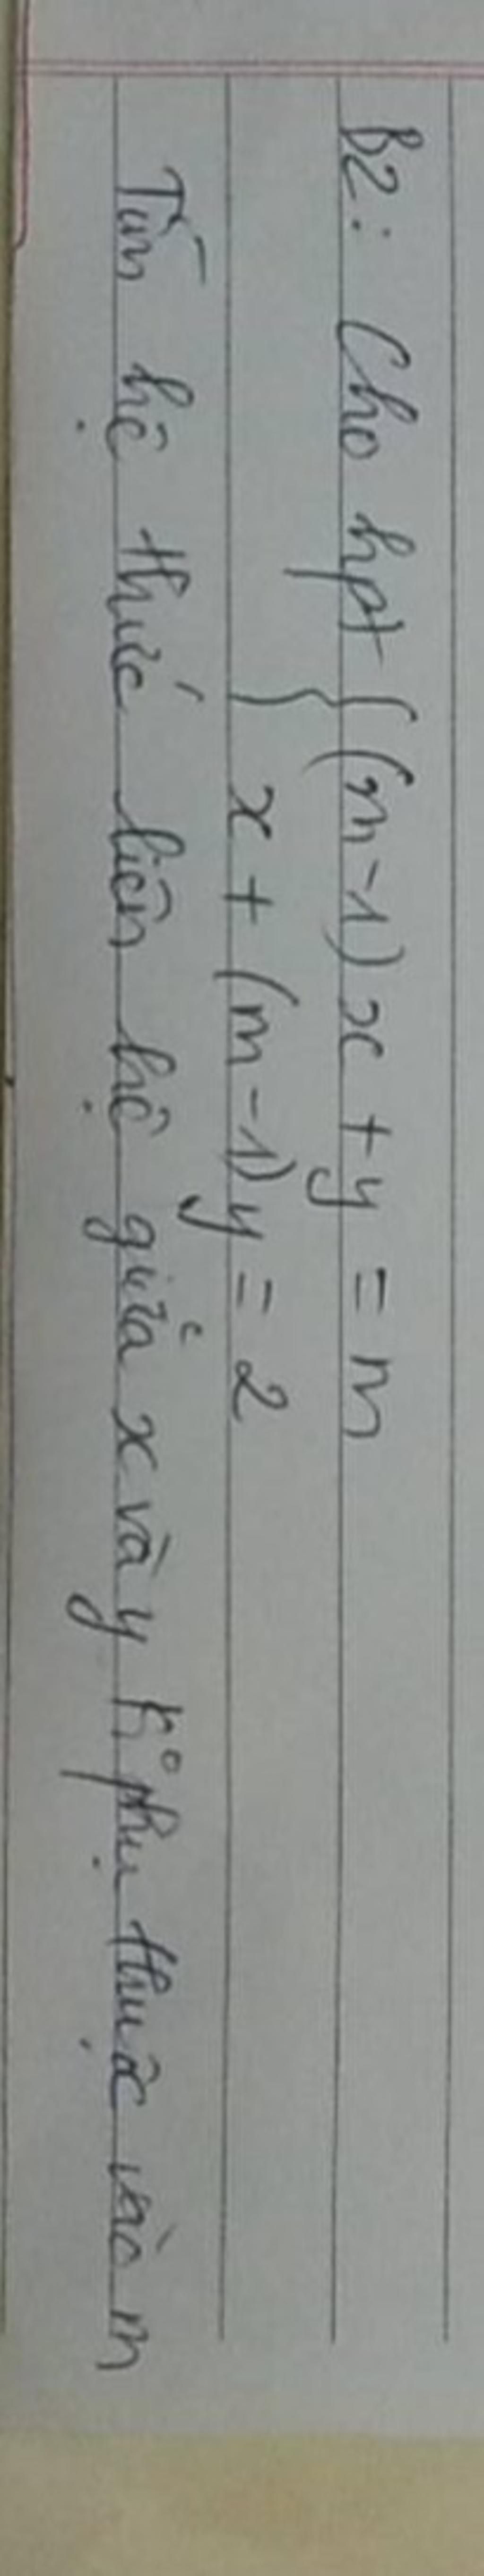 B2: Cho hpt { (m-1)x + y = m
x + (m-1)y = 2
Tìm hệ thức liên hệ giữa x và y k° phụ thuộc vào m